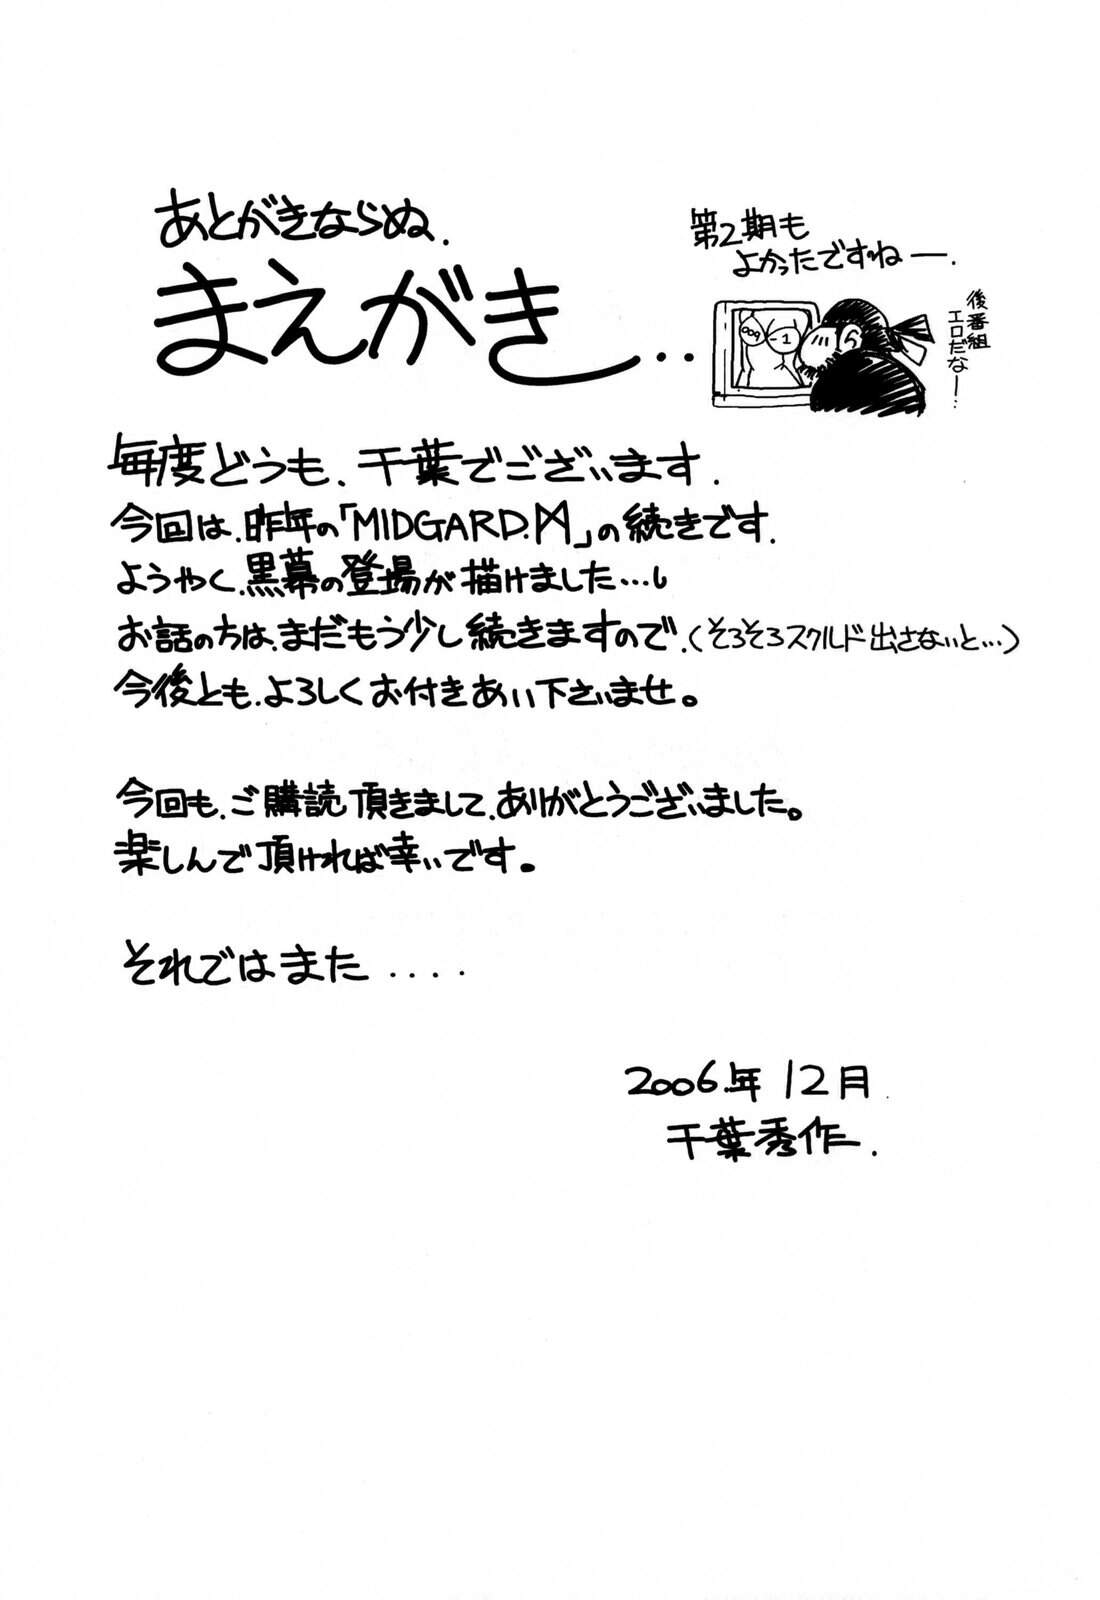 あとがきならぬ、
まえがき..
第2期も
よかったですねー.
後番組
エロだな—..
009
-1
毎度どうも、千葉でございます.
今回は、昨年の「MIDGARD.M」の続きです.
ようやく、黒幕の登場が描けました…し
お話の方は、まだもう少し続きますので、(そろそろスクルド出さないと…)
今後とも、よろしくお付きあい下さいませ。
今回も、ご購読頂きまして、ありがとうございました。
楽しんで頂ければ幸いです。
それではまた....
2006年12月
千葉秀作.